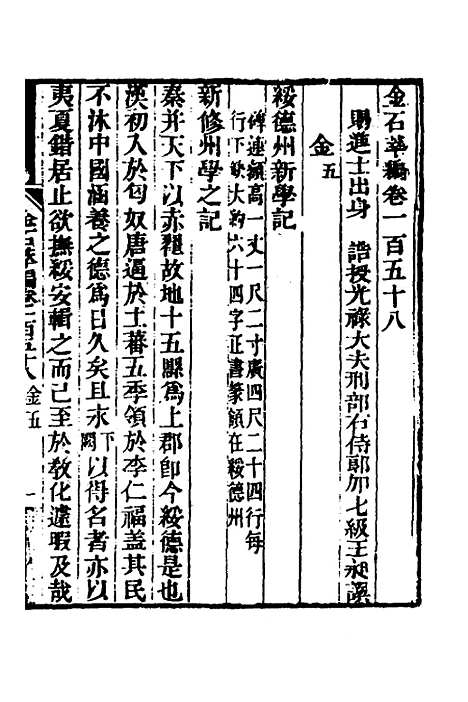 金石萃編卷一百五十八
賜進士出身 誥授光祿大夫刑部右侍郎加七級王昶譔
金五
綏德州新學記
碑連額高一丈一尺二寸廣四尺二十四行每
行下缺大約六十四字正書篆額在綏德州
新修州學之記
秦并天下以赤翟故地十五縣爲上郡卽今綏德是也
漢初入於匈奴唐逼於土蕃五季領於李仁福蓋其民
不沐中國涵養之德爲日久矣且求下闕以得名者亦以
夷夏錯居止欲撫綏安輯之而已至於敎化遑暇及哉
金石萃編卷一百五十八 金五 一